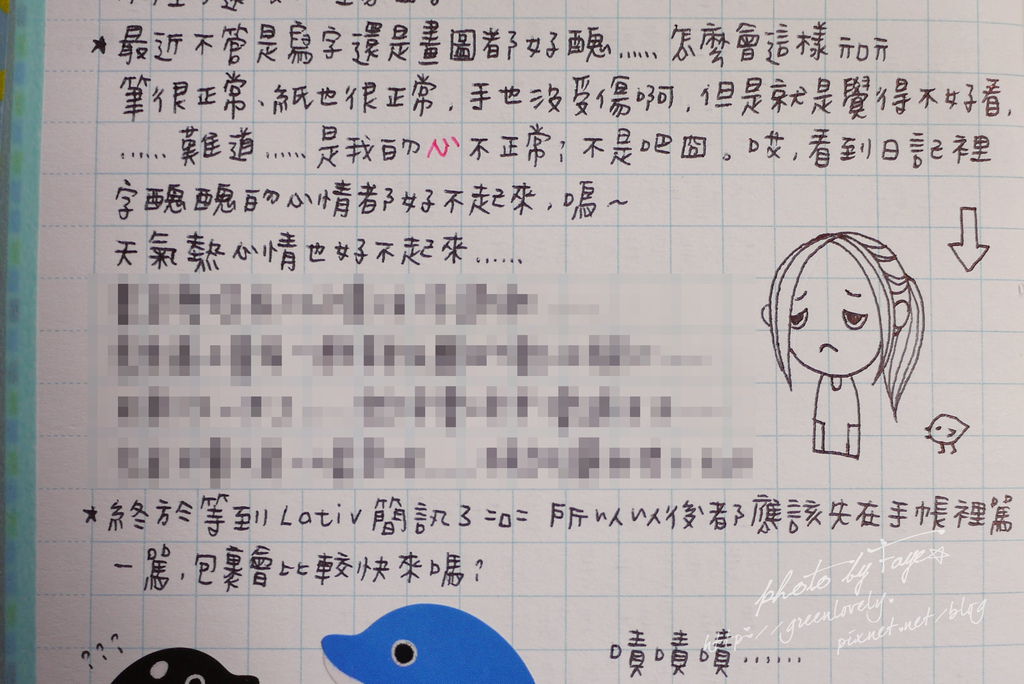 ★最近不管是寫字還是畫圖都好醜……怎麼會這樣 =口=
筆很正常、紙也很正常，手也沒受傷啊，但是就是覺得不好看，
……難道……是我的心不正常？不是吧囧。哎，看到日記裡
字醜醜的心情都好不起來，嗚～
天氣熱心情也好不起來……
★終於等到Lativ簡訊了=口= 所以以後都應該先在手帳裡罵
一罵，包裹會比較快來嗎？
???
嘖嘖嘖……
photo by Faye☆
http://greenlovely.
pixnet.net/blog